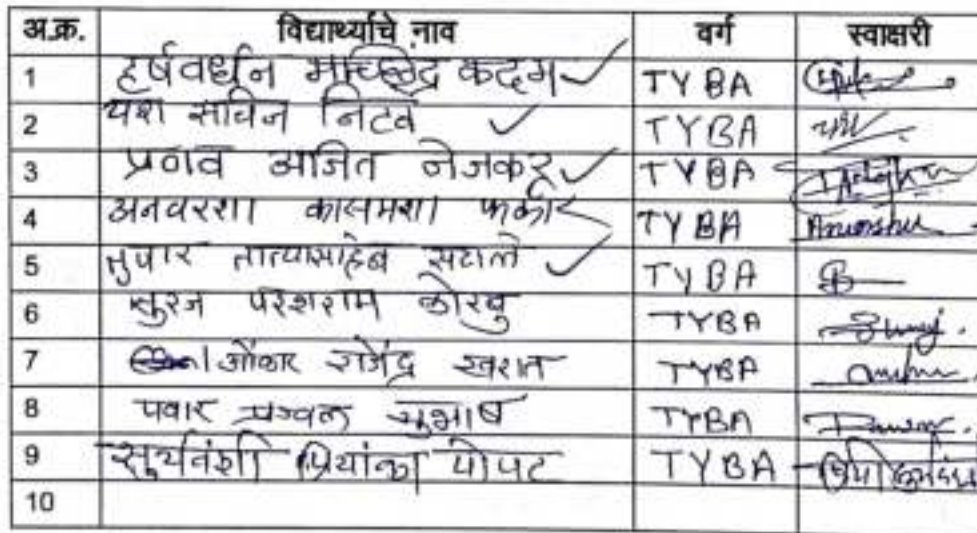 अ.क्र. विद्यार्थ्यांचे नाव वर्ग स्वाक्षरी
1 हर्षवर्धन मच्छिंद्र कदम TYBA
2 यश सचिन निटवे TYBA
3 प्रणव अजित नेजकर TYBA
4 अनवरशा कासमशा फकीर TYBA
5 तुषार तात्यासाहेब TYBA
6 सुरज परशराम कोरवु TYBA
7 ओंकार राजेंद्र खरात TYBA
8 पवार प्रज्वल सुभाष TYBA
9 सुर्यवंशी प्रियांका पोपट TYBA
10